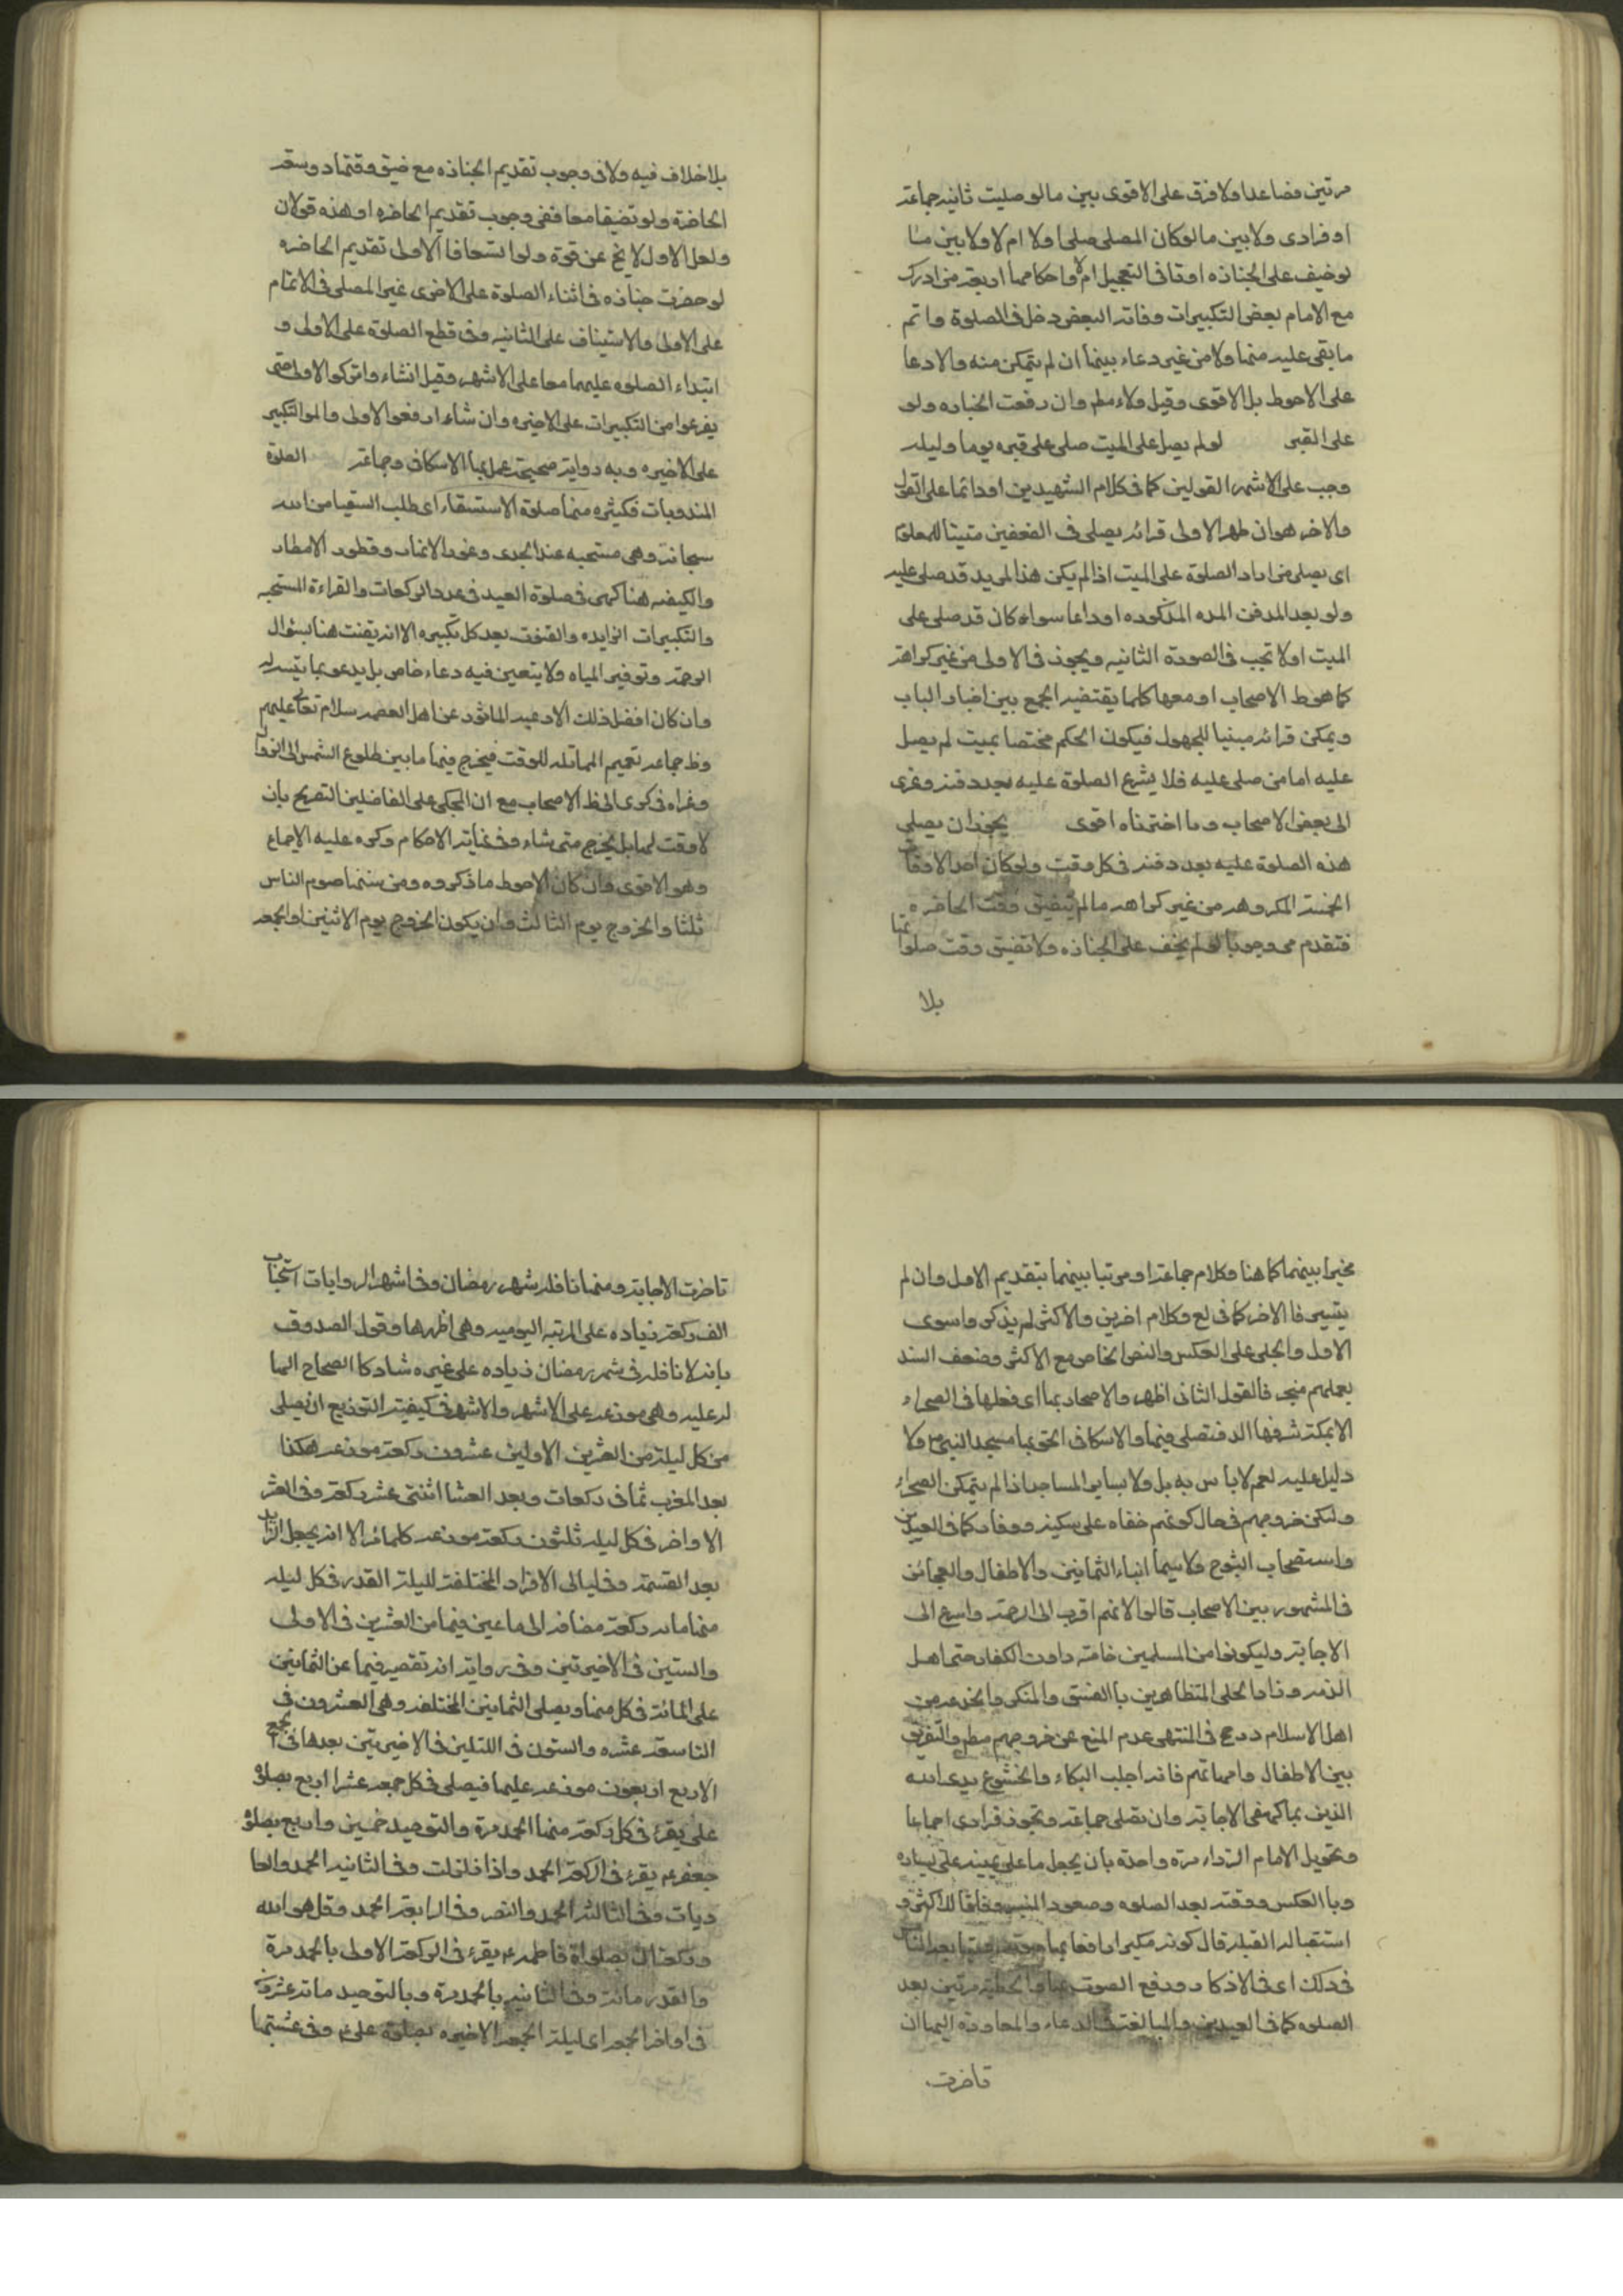 مرتين فصاعدا ولا فرق على الاقوى بين ما لو صليت ثانيه جماعة
او فرادى ولا بين ما لو كان المصلى صلى اولا ام لا ولا بين ما
لو خيف على الجنازه او نافى التعجيل ام لا واحكامها اربعة من ادرك
مع الامام بعض التكبيرات وفاته البعض دخل فى الصلوة واتم
ما بقى عليه منها ولا من غير دعاء بينها ان لم يتمكن منه والا دعا
على الاحوط بل الاقوى وقيل ولاء مطم وان رفعت الجنازه ولو
على القبر لو لم يصل على الميت صلى على قبره يوما وليله
وجب على الاشهر القولين كما فى كلام الشهيدين او دائما على القول
والاخر هو ان ظهر الاولى قرائه يصلى فى الضعفين مبنيا للمعلوم
اى يصلى من اراد الصلوة على الميت اذا لم يكن هذا المريد قد صلى عليه
ولو بعد الدفن المده المذكوره او دائما سواء كان قد صلى على
الميت اولا تجب فى الصورة الثانيه ويجوز فى الاولى من غير كراهة
كما هو ظ الاصحاب او معها كلما يقتضيه الجمع بين اخبار الباب
ويمكن قرائه مبنيا للمجهول فيكون الحكم مختصا بميت لم يصل
عليه اما من صلى عليه فلا يشرع الصلوة عليه بعد دفنه وعزى
الى بعض الاصحاب وما اخترناه اقوى يجوز ان يصلى
هذه الصلوة عليه بعد دفنه فى كل وقت ولو كان احد الاوقات
الخمسة المكروهه من غير كراهه ما لم يتضيق وقت الحاضره
فتقدم هى وجوبا لو لم يخف على الجنازه ولا تضيق وقت صلواتها
بلا
بلا خلاف فيه ولا فى وجوب تقديم الجنازه مع ضيق وقتها وسعة
الحاضرة ولو تضيقا معا ففى وجوب تقديم الحاضره او هذه قولان
ولعل الاول لا يخ عن قوة ولو اتسعا فالاولى تقديم الحاضره
لو حضرت جنازه فى اثناء الصلوة على الاخرى غير المصلى فى الاتمام
على الاولى والاستيناف على الثانيه وفى قطع الصلوة على الاولى و
ابتداء الصلوه عليهما معا على الاشهر وقيل ان شاءوا تركوا الاولى حتى
يفرغوا من التكبيرات على الاخيره وان شاءوا رفعوا الاولى واتموا التكبير
على الاخيره وبه رواية صحيحة عمل بها الاسكافى وجماعة الصلوة
المندوبات فكثيره منها صلوة الاستسقاء اى طلب السقيا من الله
سبحانه وهى مستحبه عند الجدب وغور الانهار وفتور الامطار
والكيفيه هنا كهى فى صلوة العيد فى عدد الركعات والقراءة المستحبه
والتكبيرات الزايده والقنوت بعد كل تكبيره الا انه يقنت هنا بسؤال
الرحمة وتوفير المياه ولا يتعين فيه دعاء خاص بل يدعو بما يتيسر له
وان كان افضل ذلك الادعيه الماثوره عن اهل العصمه سلام الله تعالى عليهم
وظ جماعه تعميم المماثله للوقت فيخرج فيها ما بين طلوع الشمس الى الزوال
وعزاه فى كرى الى ظ الاصحاب مع ان المحكى على الفاضلين التصريح بان
لا وقت لها بل يخرج متى شاء وفى نهاية الاحكام وكره عليه الاجماع
وهو الاقوى وان كان الاحوط ما ذكروه ومن سننها صوم الناس
ثلثا والخروج يوم الثالث وان يكون الخروج يوم الاثنين او الجمعه
مخيرا بينهما كما هنا وكلام جماعة او مرتبا بينهما بتقديم الاول وان لم
يتيسر فالاخر كما فى يع وكلام اخرين والاكثر لم يذكروا سوى
الاول والحلى على العكس والنص الخاص مع الاكثر وضعف السند
بعملهم منجبر فالقول الثانى اظهر والاصحار بها اى فعلها فى الصحراء
الا بمكة شرفها الله فتصلى فيها والاسكافى الحق بها مسجد النبى ص ولا
دليل عليه نعم لا باس به بل ولا بساير المساجد اذا لم يتمكن الصحراء
وليكن خروجهم فى حال كونهم حفاه على سكينه ووقار كما فى العيدين
واستصحاب الشيوخ ولا سيما ابناء الثمانين والاطفال والعجائز
فى المشهور بين الاصحاب قالوا لانهم اقرب الى الرحمة واسرع الى
الاجابة وليكونوا من المسلمين خاصه دون الكفار حتى اهل
الذمه وزاد الحلى المتظاهرين بالفسق والمنكر والخدعه من
اهل الاسلام ورجح فى المنتهى عدم المنع عن خروجهم مطم والتفريق
بين الاطفال وامهاتهم فانه اجلب البكاء والخشوع يدى الله
الذين بها كهفى الاجابة وان تصلى جماعة وتجوز فرادى اجماعا
وتحويل الامام الرداء مرة واحدة بان يجعل ما على يمينه على يساره
وبالعكس ووقته بعد الصلوه وصعود المنبر وفاقا للاكثر و
استقبال القبله قال كونه مكبرا رافعا بها صوته متابعه الناس
فى ذلك اى فى الاذكار ورفع الصوت بها والخطبة مرتين بعد
الصلوه كما فى العيدين والمبالغة فى الدعاء والمعاودة اليها ان
تاخرت
تاخرت الاجابة ومنها نافلة شهر رمضان وفى اشهر الروايات استحباب
الف ركعة زياده على المرتبه اليوميه وهى اظهرها وقول الصدوق
بانه لا نافله فى شهر رمضان زياده على غيره شاذ كالصحاح الدالة
له عليه وهى موزعه على الاشهر والاشهر فى كيفية التوزيع ان يصلى
من كل ليلة من العشرين الاولين عشرون ركعة موزعه هكذا
بعد المغرب ثمانى ركعات وبعد العشا اثنتى عشر ركعة وفى العشر
الاواخر فى كل ليله ثلثون ركعة موزعه كما مر الا انه يجعل الزايد
بعد القسمة وفى ليالى الافراد المختلفة لليلة القدر فى كل ليله
منها مائه ركعة مضافه الى ما عين فيها من العشرين فى الاولى
والستين فى الاخيرتين وفى رواية انه تقصير فيها عن الثمانين
على المائة فى كل منها ويصلى الثمانين المختلفه وهى العشرون فى
التاسعة عشره والستون فى الليلتين فى الاخيرتين بعدها فى الجمع
الاربع اربعون موزعه عليها فيصلى فى كل جمعه عشرا اربع بصلوة
على يقرء فى كل ركعة منها الحمد مرة والتوحيد خمسين واربع بصلوة
جعفر ع يقرء فى الركعة الحمد واذا زلزلت وفى الثانيه الحمد والعا
ديات وفى الثالثه الحمد والنصر وفى الرابعة الحمد وقل هو الله
وركعتان بصلوة فاطمه ع يقرء فى الركعة الاولى بالحمد مرة
والقدر مائة وفى الثانيه بالحمد مرة وبالتوحيد مائة عشرون
فى اواخر الجمعه اى ليلة الجمعه الاخيره بصلوة على ع وفى عشيتها